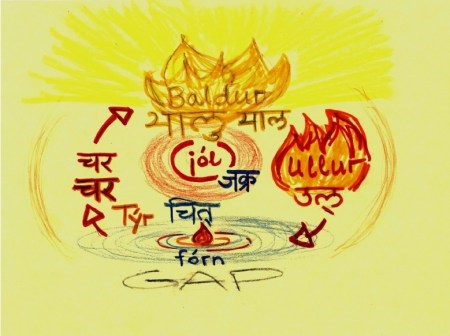 Baldur
भालु भाल
jól
चर
चर
जक्र
ullur
उल्
Týr
चित्
fórn
GAP